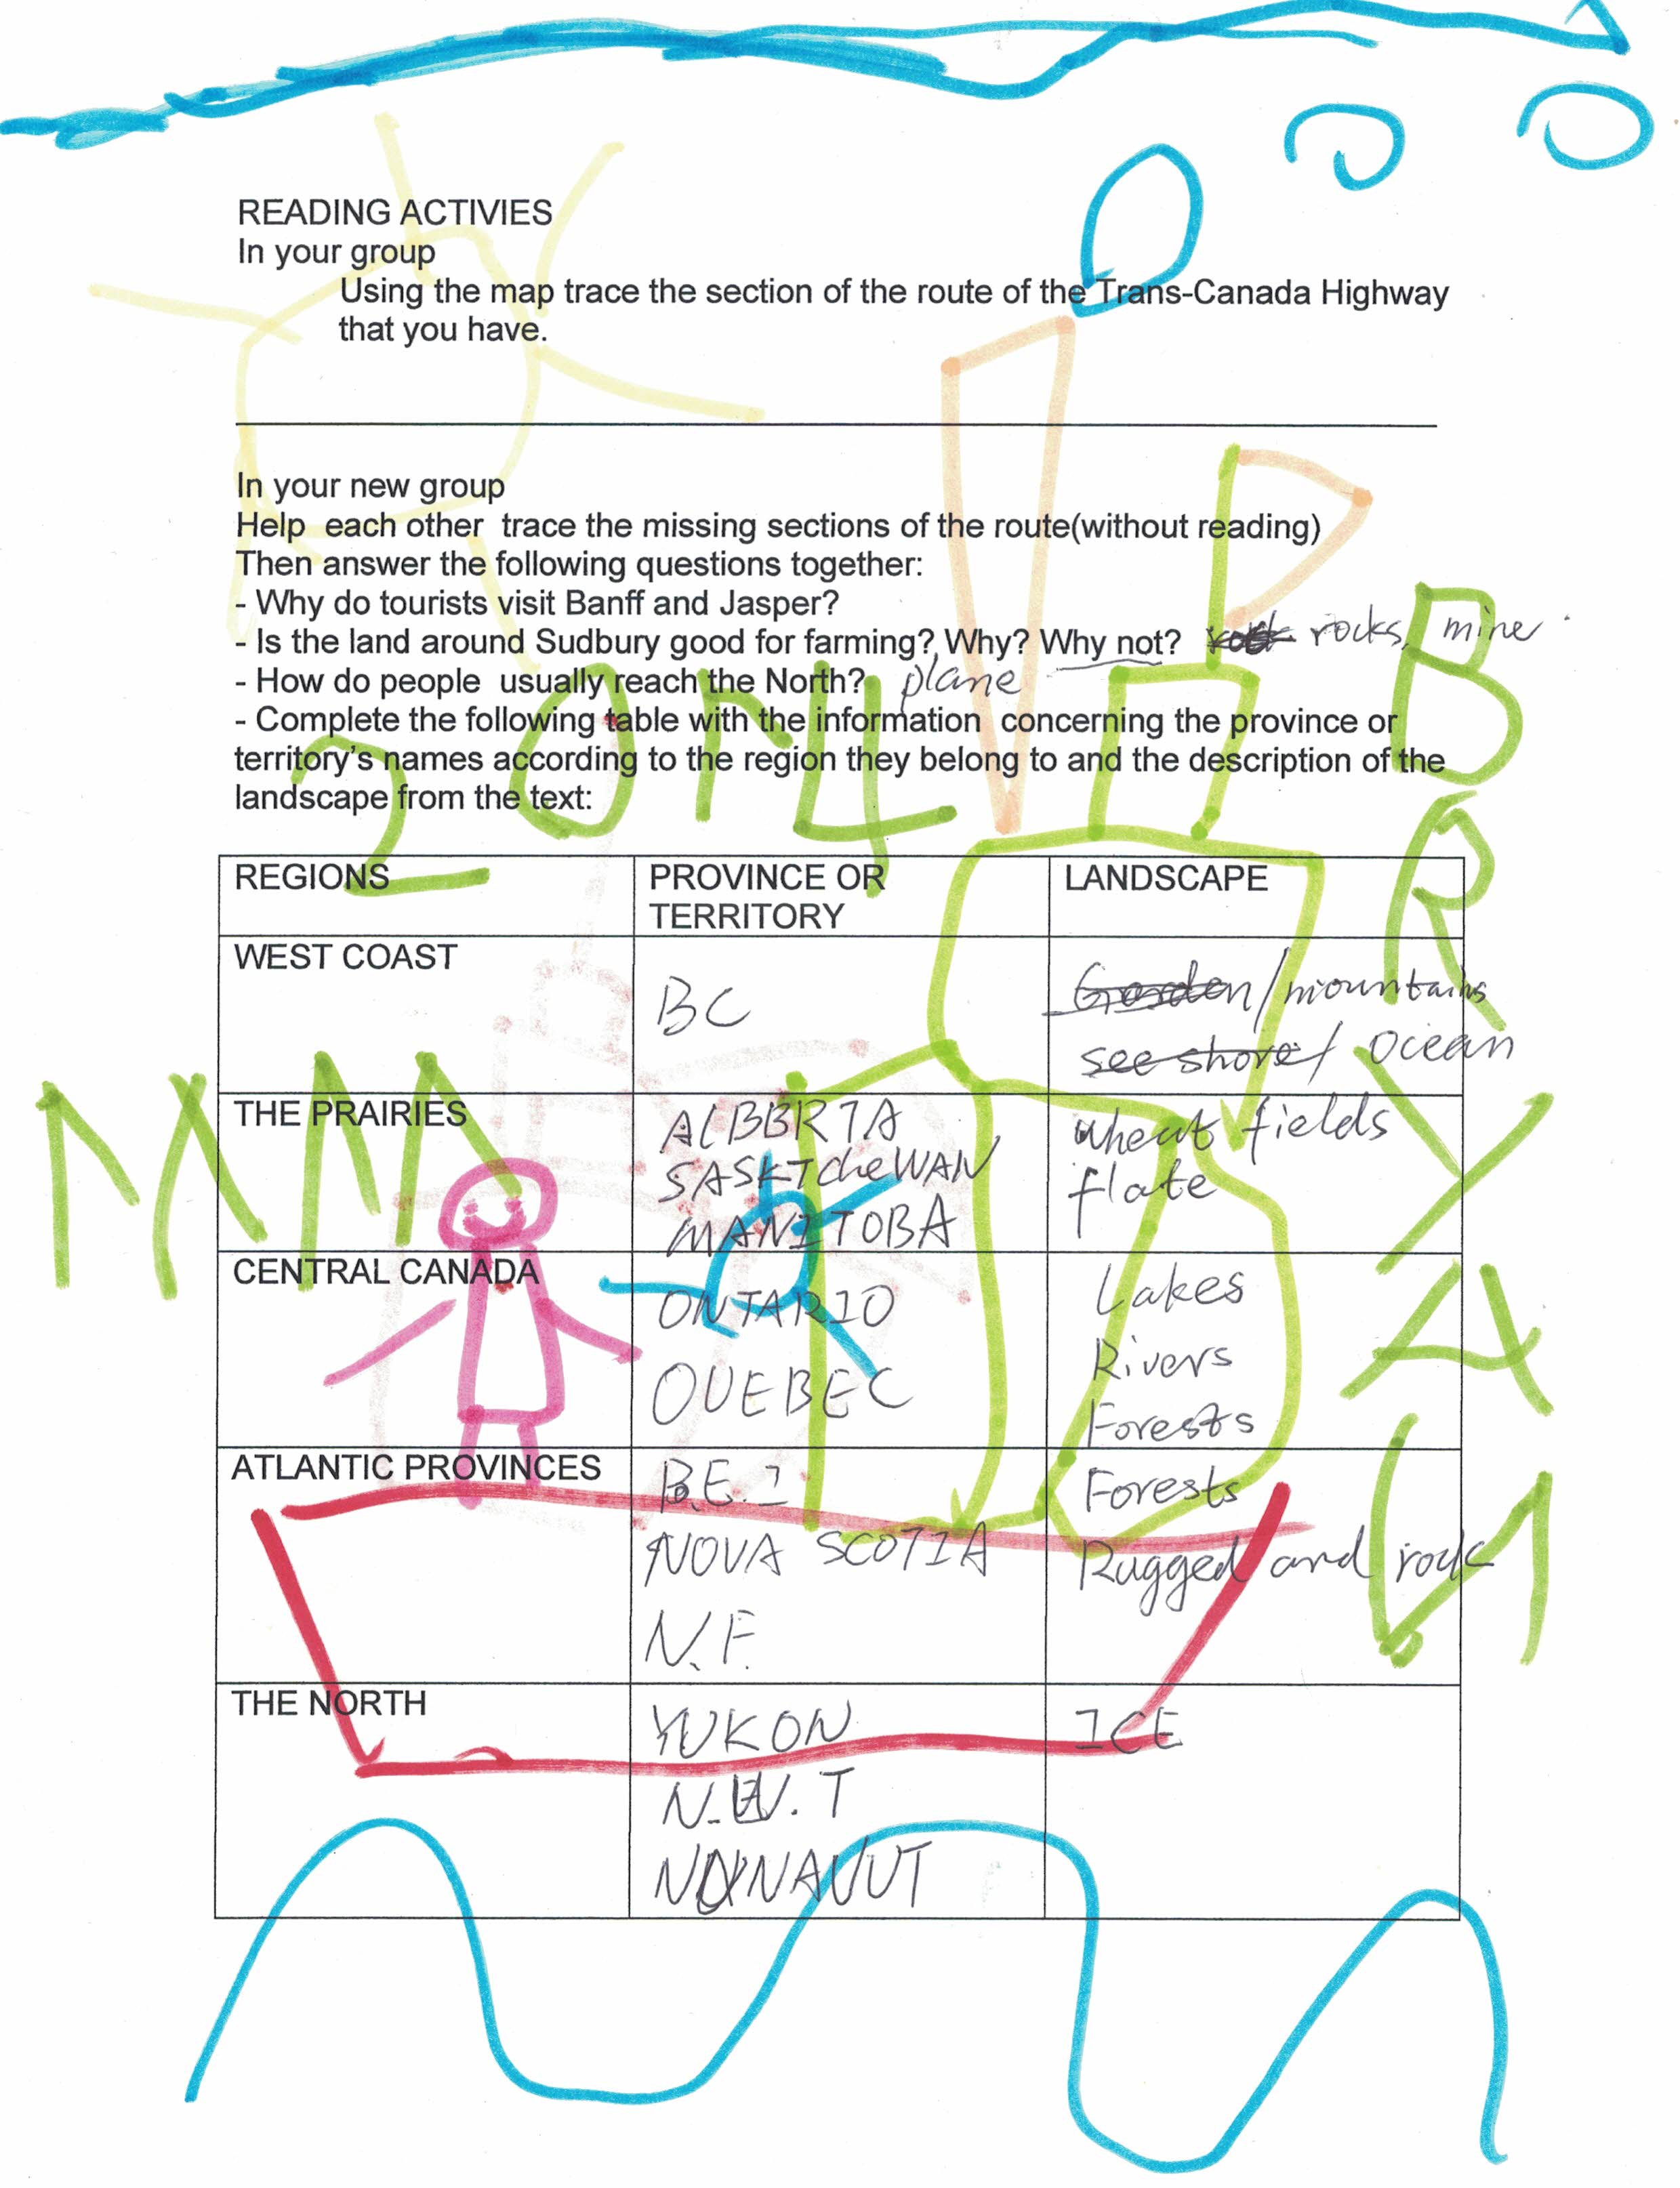 READING ACTIVIES
In your group
Using the map trace the section of the route of the Trans-Canada Highway
that you have.
In your new group
Help each other trace the missing sections of the route(without reading)
Then answer the following questions together:
- Why do tourists visit Banff and Jasper?
- Is the land around Sudbury good for farming? Why? Why not? rocks, mine
- How do people usually reach the North? plane
- Complete the following table with the information concerning the province or
territory's names according to the region they belong to and the description of the
landscape from the text:
2014
REGIONS PROVINCE OR TERRITORY LANDSCAPE
WEST COAST BC Garden/mountains
see shore/ Ocean
THE PRAIRIES ALBBRTA wheat fields
SASKTcheWAN flate
MANITOBA
CENTRAL CANADA ONTARIO Lakes
QUEBEC Rivers
Forests
ATLANTIC PROVINCES P.E.I Forests
NOVA SCOTIA Rugged and rock
N.F.
THE NORTH YUKON ICE
N.W.T
NUNAVUT
BRYAN